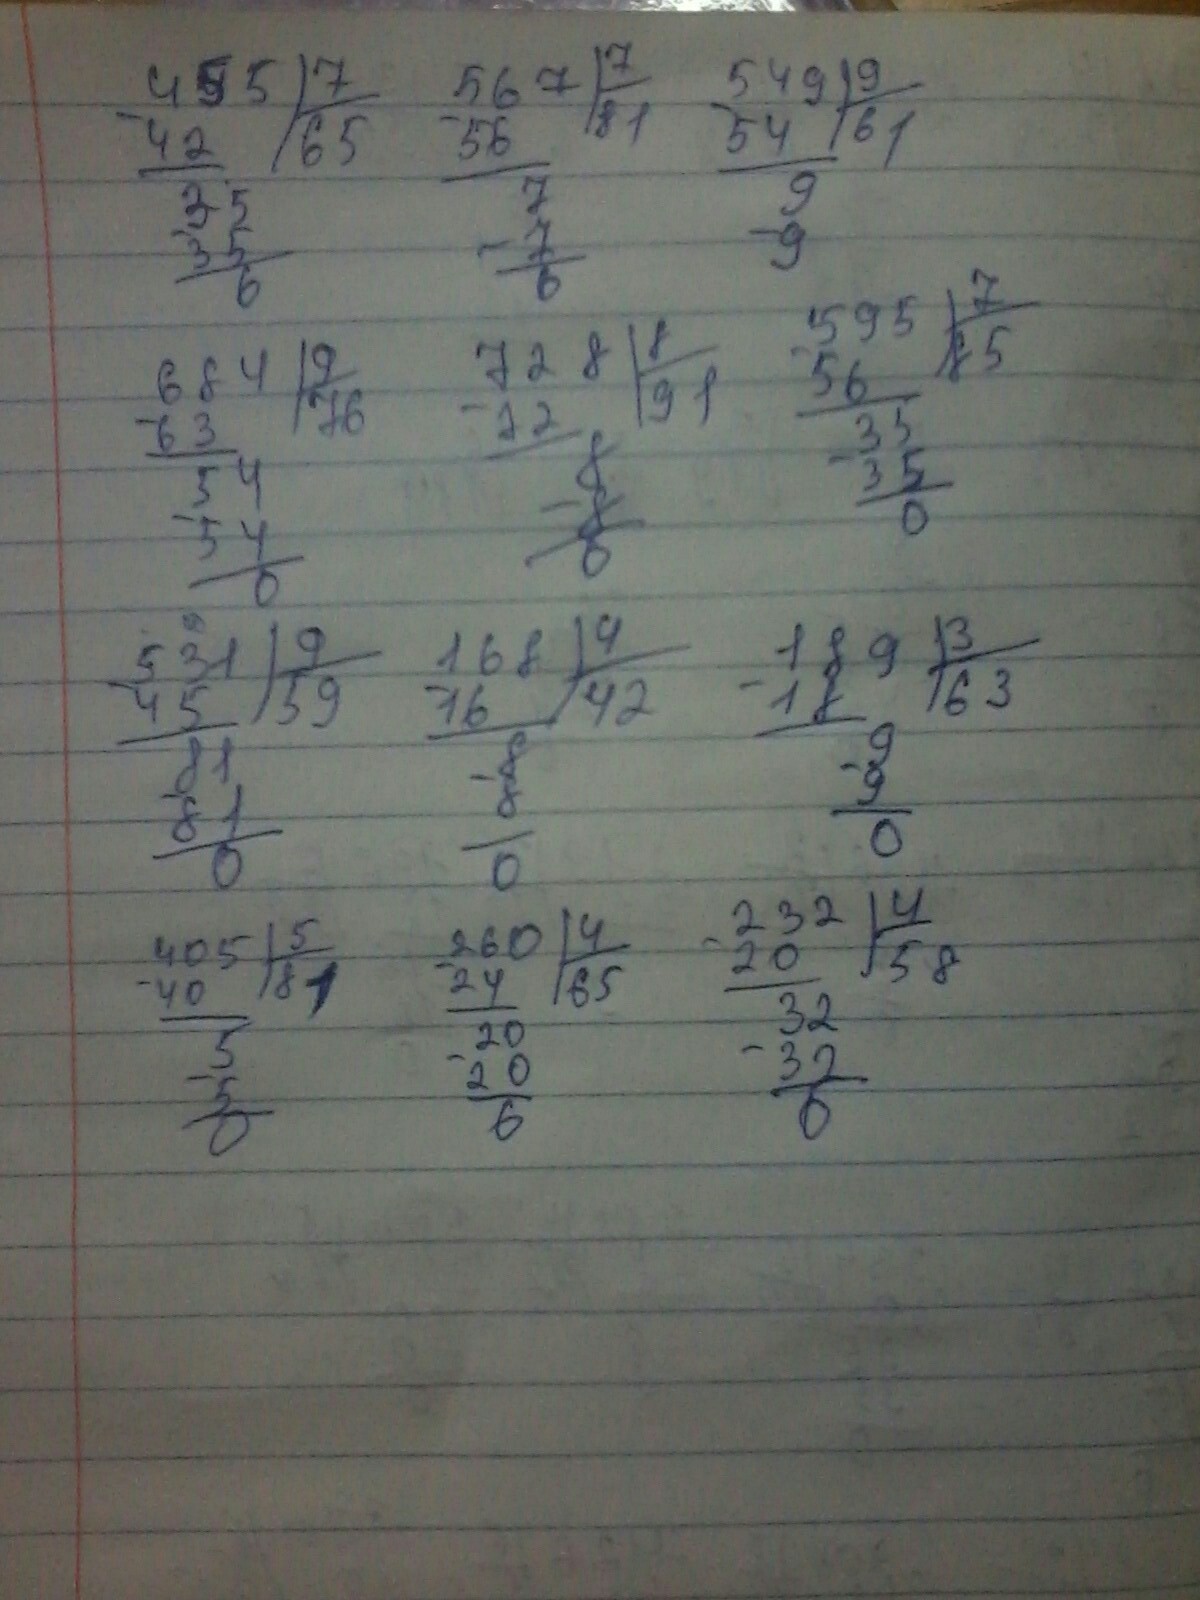 455 7 567 7 549 9
-42 65 -56 81 -54 61
35 7 9
-35 -7 -9
0 0
684 9 728 8 595 7
-63 76 -72 91 -56 85
54 8 35
-54 -8 -35
0 0 0
531 9 168 4 189 3
-45 59 -16 42 -18 63
81 8 9
-81 -8 -9
0 0 0
405 5 260 4 232 4
-40 81 -24 65 -20 58
5 20 32
-5 -20 -32
0 0 0